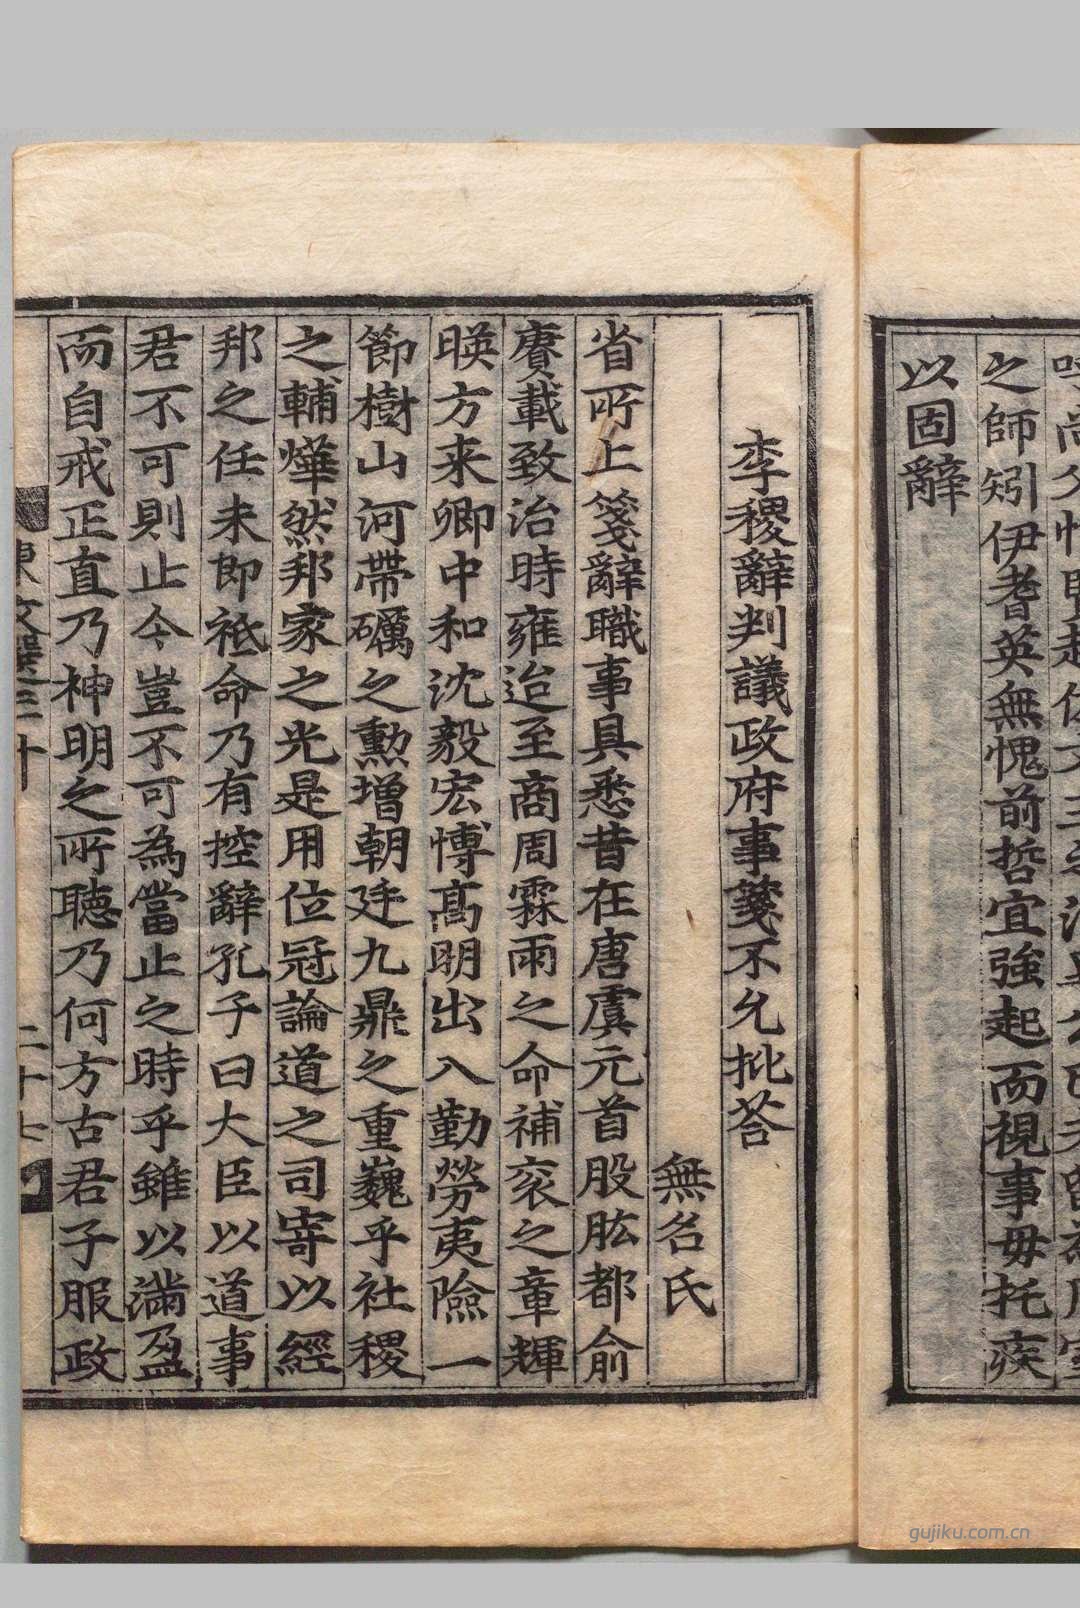 之師矧伊耆英無愧前哲宜強起而視事毋托疾
以固辭
李稷辭判議政府事箋不允批答
無名氏
省所上箋辭職事具悉昔在唐虞元首股肱都俞
賡載致治時雍迨至商周霖雨之命補袞之章輝
暎方来卿中和沈毅宏博高明出入勤勞夷險一
節樹山河帶礪之勲增朝廷九鼎之重巍乎社稷
之輔燁然邦家之光是用位冠論道之司寄以經
邦之任未即祗命乃有控辭孔子曰大臣以道事
君不可則止今豈不可為當止之時乎雖以滿盈
而自戒正直乃神明之所聽乃何方古君子服政
東文選三十 二十七
gujiku.com.cn